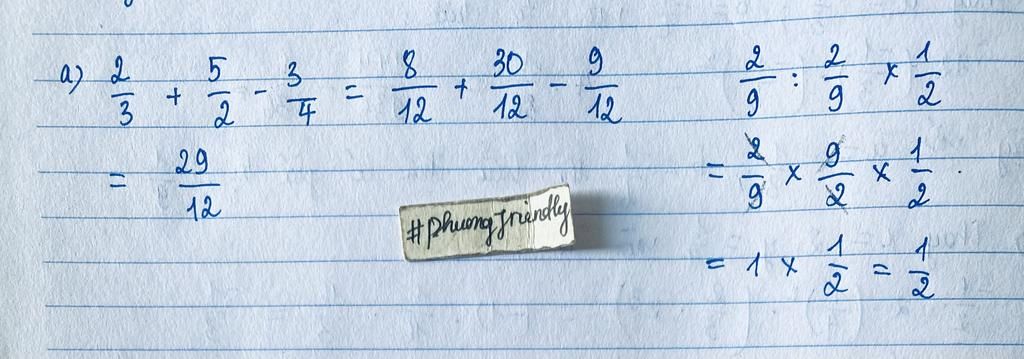 a) 2/3 + 5/2 - 3/4 = 8/12 + 30/12 - 9/12
= 29/12
#phuongfriendly
2/9 : 2/9 × 1/2
= 2/9 × 9/2 × 1/2
= 1 × 1/2 = 1/2